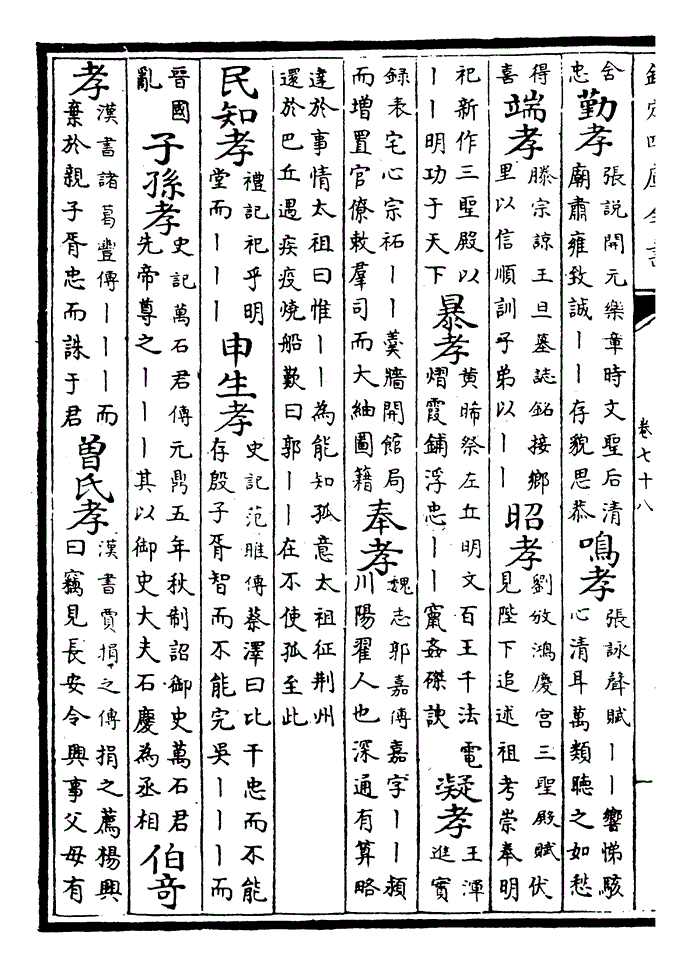 欽定四庫全書 卷七十八 一
舍忠勤孝張說開元樂章時文聖后清廟肅雍致誠丨丨存貌思恭鳴孝張詠聲賦丨丨響悌駭心清耳萬類聽之如愁
得喜端孝滕宗諒王旦墓誌銘接鄉里以信順訓子弟以丨丨昭孝劉攽鴻慶宮三聖殿賦伏見陛下追述祖考崇奉明
祀新作三聖殿以丨丨明功于天下暴孝黄晞祭左丘明文百王千法電熠霞鋪浮忠丨丨竄姦磔諛凝孝王渾進實
録表宅心宗祏丨丨羹牆開館局而增置官僚敕羣司而大紬圖籍奉孝魏志郭嘉傳嘉字丨丨頴川陽翟人也深通有算略
達於事情太祖曰惟丨丨為能知孤意太祖征荆州還於巴丘遇疾疫燒船歎曰郭丨丨在不使孤至此
民知孝禮記祀乎明堂而丨丨丨申生孝史記范雎傳蔡澤曰比干忠而不能存殷子胥智而不能完吳丨丨丨而
晉國亂子孫孝史記萬石君傳元鼎五年秋制詔御史萬石君先帝尊之丨丨丨其以御史大夫石慶為丞相伯奇
孝漢書諸葛豐傳丨丨丨而棄於親子胥忠而誅于君曾氏孝漢書賈捐之傳捐之薦楊興曰竊見長安令興事父母有